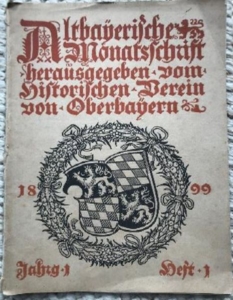 Altbayerische
Monatsschrift
herausgegeben vom
Historischen Verein
von Oberbayern
18 99
Jahrg. 1 Heft 1